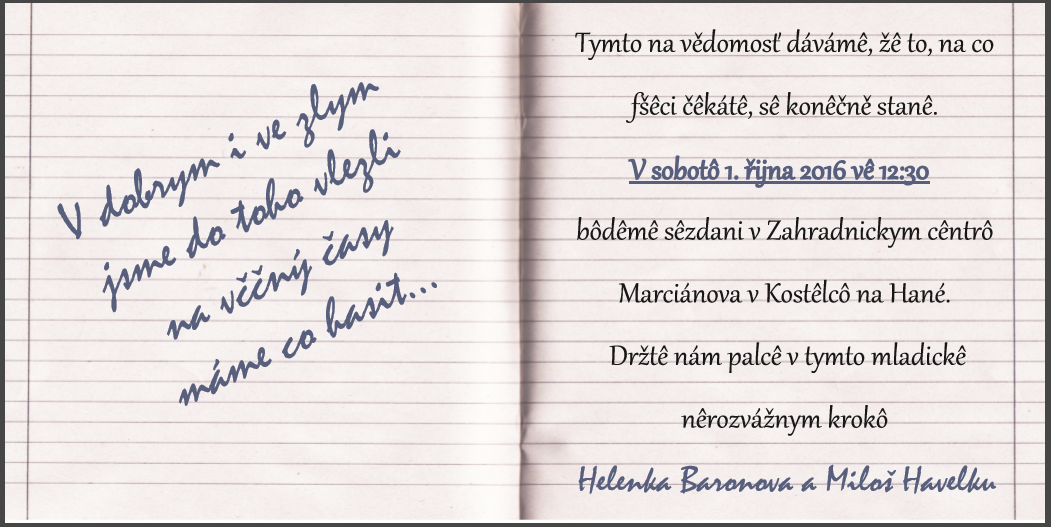 V dobrym i ve zlym
jsme do toho vlezli
na věčný časy
máme co hasit...
Tymto na vědomosť dávámê, žê to, na co
fšêci čêkátê, sê konêčně stanê.
V sobotô 1. řijna 2016 vê 12:30
bôdêmê sêzdani v Zahradnickym cêntrô
Marciánova v Kostêlcô na Hané.
Držtê nám palcê v tymto mladickê
nêrozvážnym krokô
Helenka Baronova a Miloš Havelku